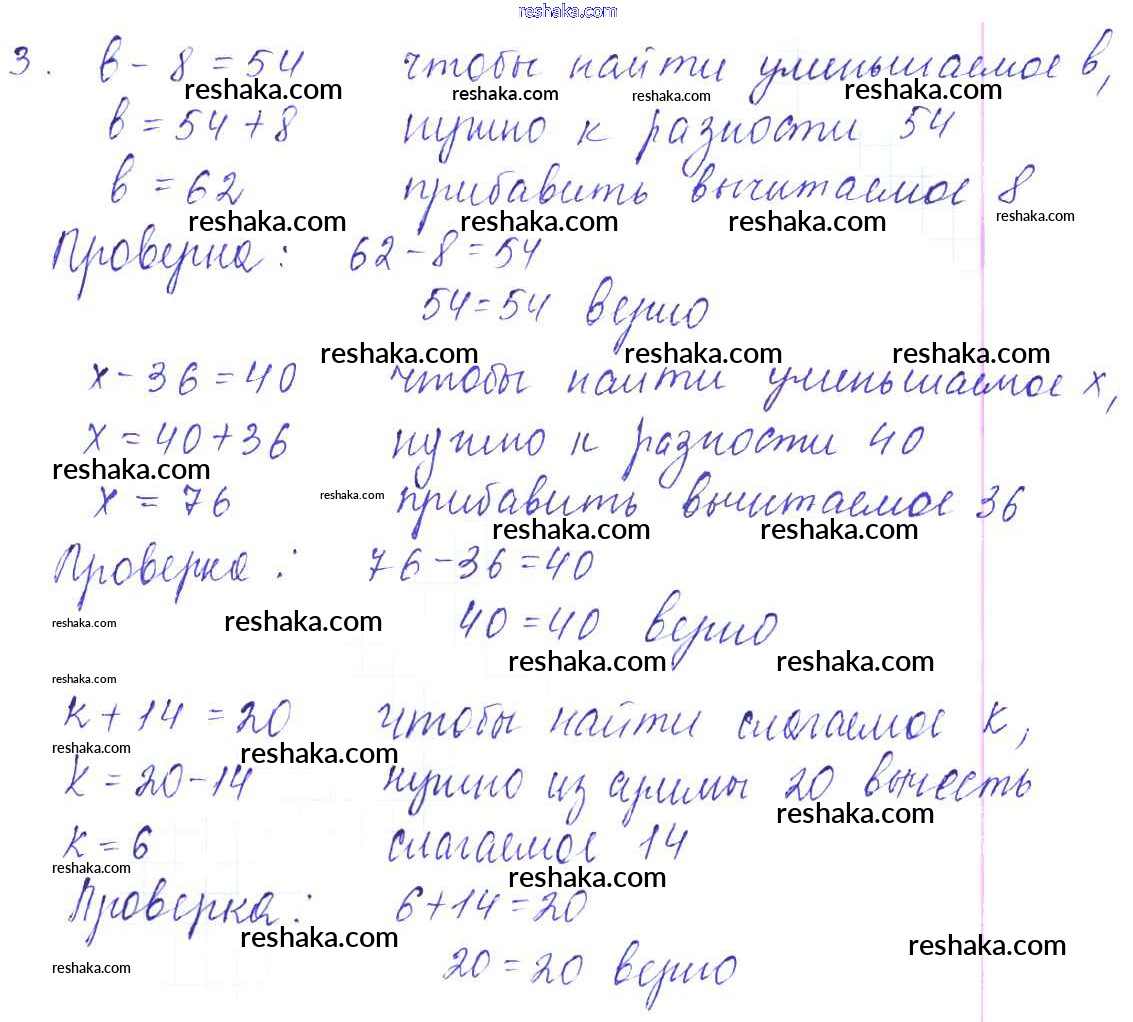 reshaka.com
3. в - 8 = 54 чтобы найти уменьшаемое в,
reshaka.com reshaka.com reshaka.com reshaka.com
в = 54 + 8 нужно к разности 54
в = 62 прибавить вычитаемое 8
reshaka.com reshaka.com reshaka.com reshaka.com
Проверка: 62 - 8 = 54
54 = 54 верно
reshaka.com reshaka.com reshaka.com
х - 36 = 40 чтобы найти уменьшаемое х,
х = 40 + 36 нужно к разности 40
reshaka.com
х = 76 reshaka.com прибавить вычитаемое 36
reshaka.com reshaka.com
Проверка: 76 - 36 = 40
reshaka.com reshaka.com 40 = 40 верно
reshaka.com reshaka.com
reshaka.com
к + 14 = 20 чтобы найти слагаемое к,
reshaka.com reshaka.com
к = 20 - 14 нужно из суммы 20 вычесть
reshaka.com
к = 6 слагаемое 14
reshaka.com reshaka.com
Проверка: 6 + 14 = 20
reshaka.com reshaka.com
reshaka.com 20 = 20 верно